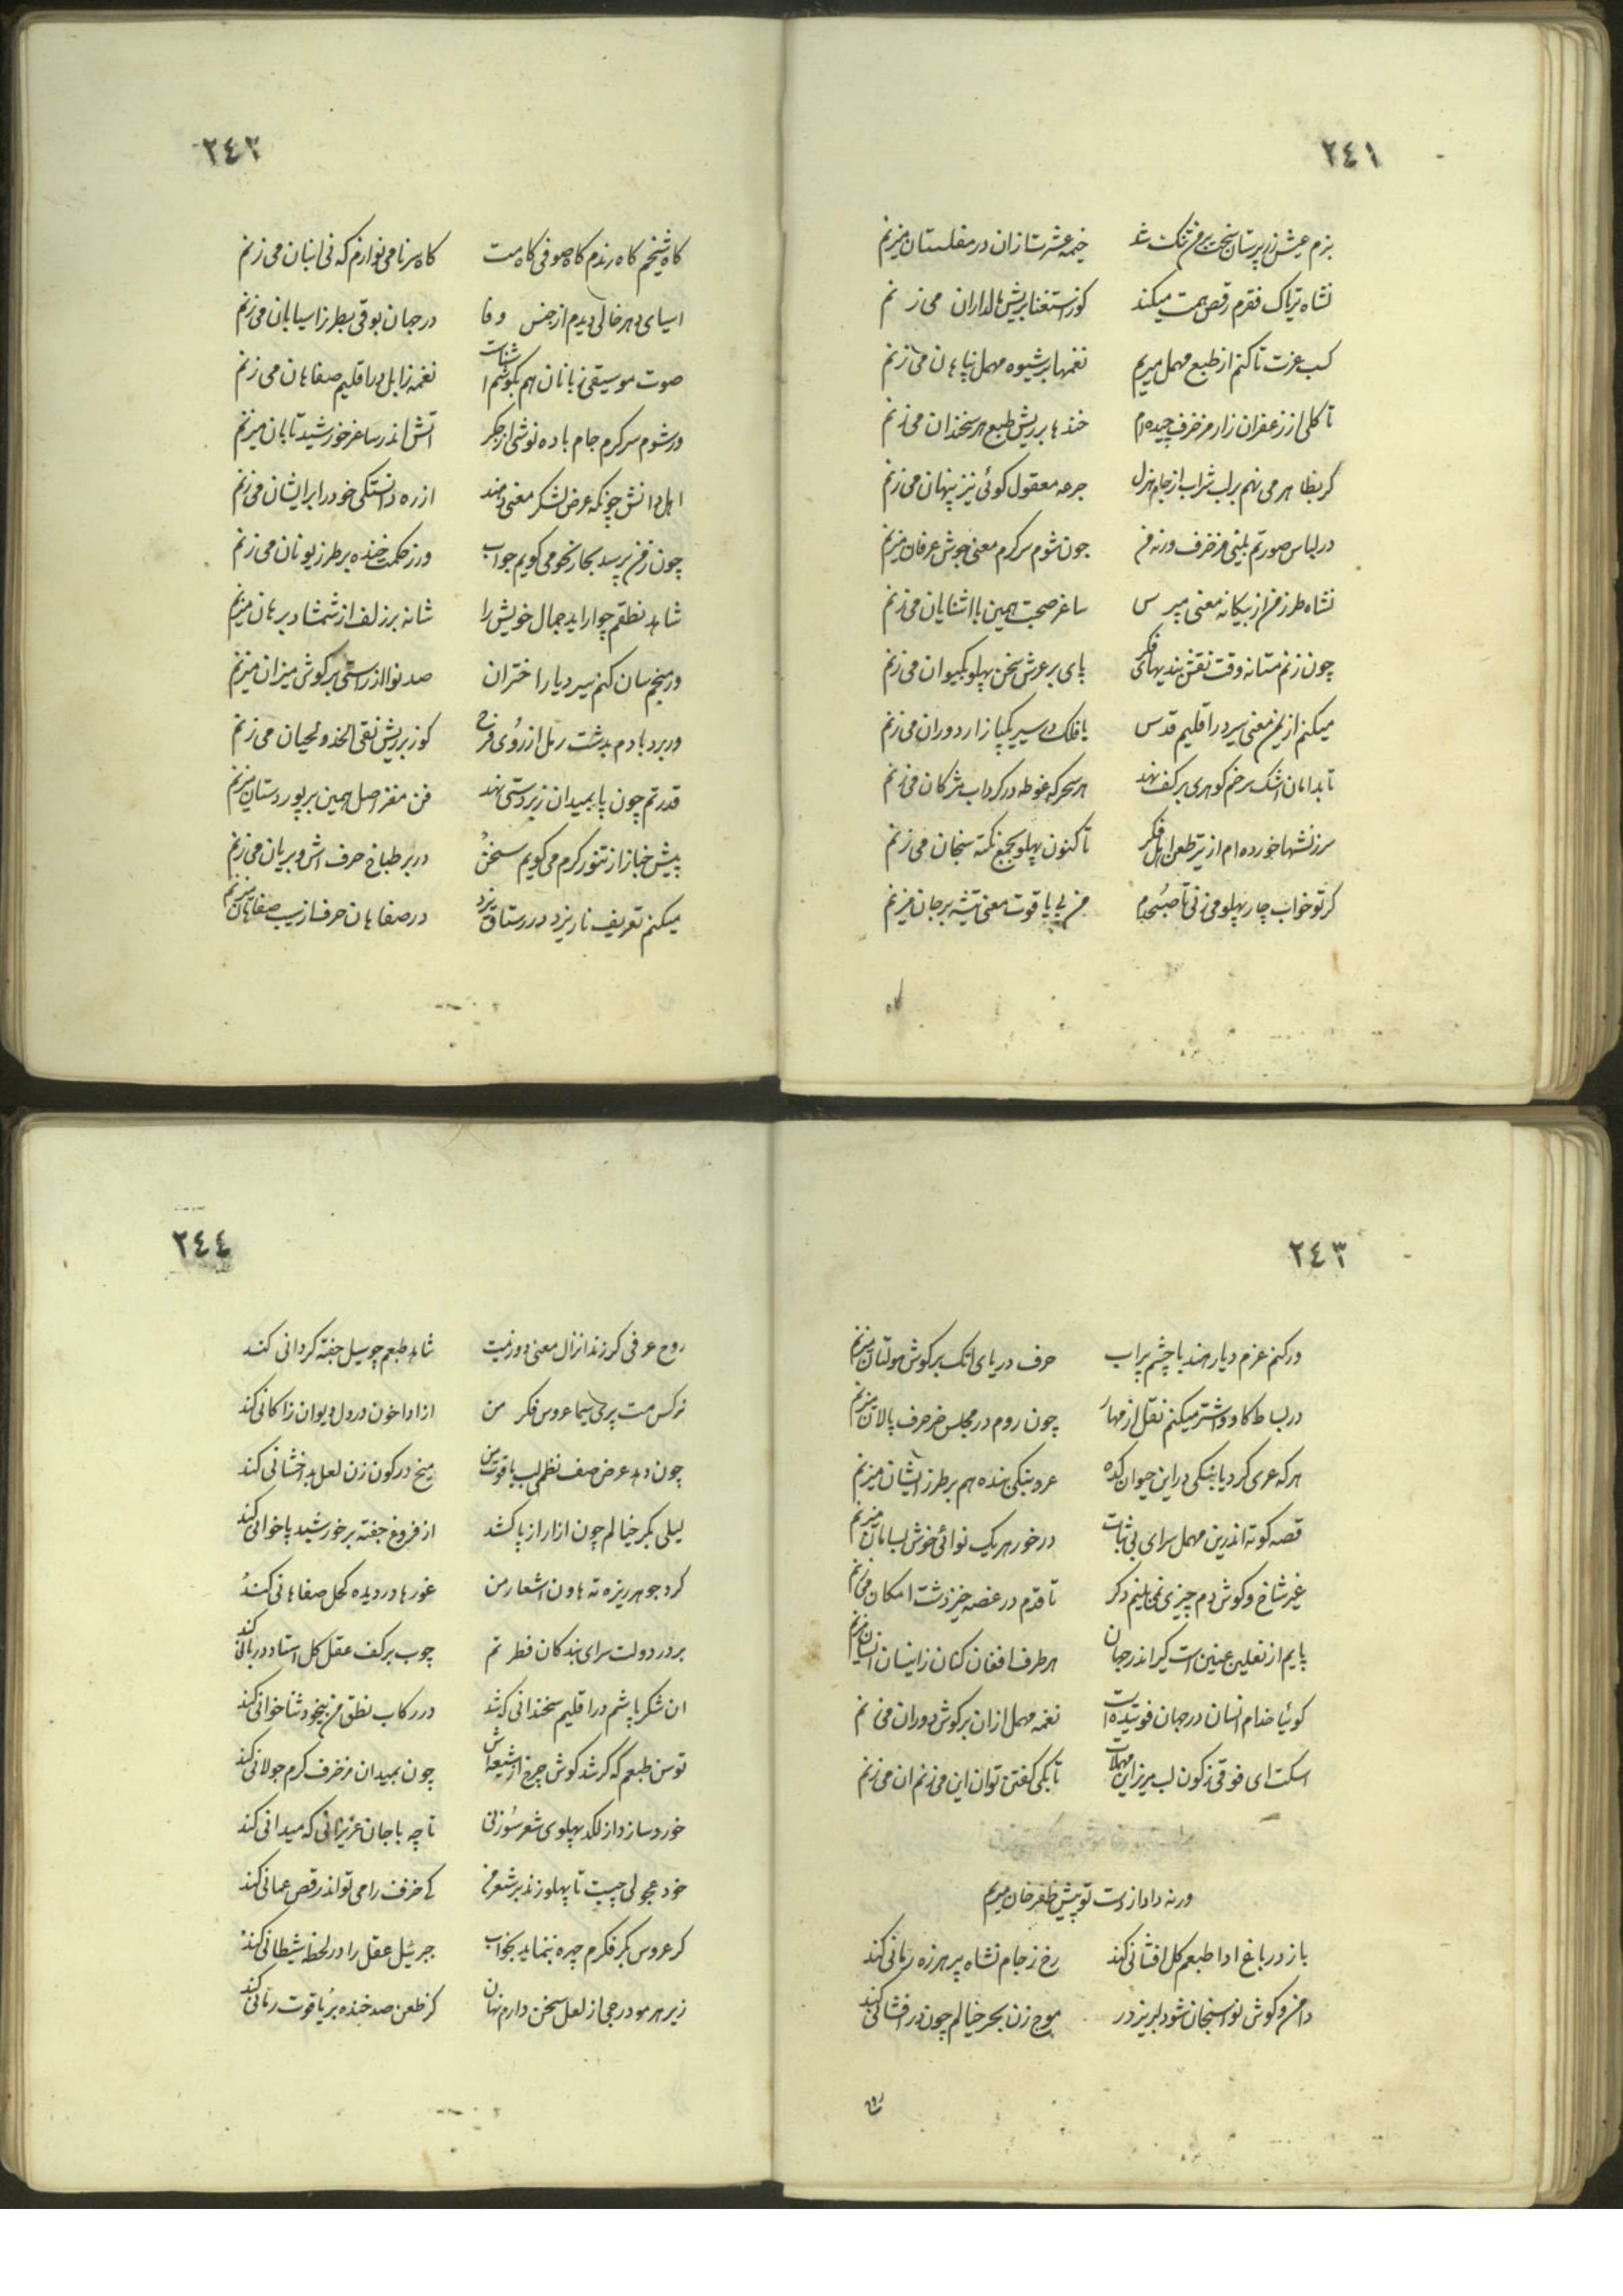 ٢٤١
بزم عیش زر پرستان سخت بر من تنک شد خیمه عشرت ازان در مفلستان میزنم
نشاه تریاک فقرم رقص همت میکند کوز استغنا بریش مالداران می زنم
کسب عزت تا کنم از طبع مهمل میریم نغمها بر شیوه مهمل نیاهان می زنم
تا کلی از زعفران زار مزخرف چیده‌ام خندها بر ریش طبع هر سخندان می زنم
کر بظاهر می نهم بر لب شراب از جام هزل جرعه معقول کوئی نیز پنهان می زنم
در لباس صورتم بینی مزخرف ورنه من چون شوم سرکرم معنی جوش عرفان میزنم
نشاه طرز من از بیکانه معنی مپرس ساغر صحبت همین با اشنایان می زنم
چون زنم مستانه وقت نقش بندیهای فکر پای بر عرش سخن پهلو بکیوان می زنم
میکنم از یمن معنی سیر در اقلیم قدس با فلک در سیر یکپا زار دوران می زنم
تا بدامان اشک سرخم کوهری بر کف نهد هر سحرکه غوطه در کرداب مژکان می زنم
سرزنشها خورده‌ام از تیر طعن اهل فکر تا کنون پهلو بجمع نکته سنجان می زنم
کر تو خواب چار پهلو می زنی تا صبحدم من پی یاقوت معنی تیشه بر جان میزنم
کاه
٢٤٢
کاه شیخم کاه رندم کاه صوفی کاه مست کاه سرنا می نوازم که نی انبان می زنم
اسیای دهر خالی دیدم از جنس وفا در جهان بوقی بطرز اسیابان می زنم
صوت موسیقی زبانان هم بکوشم اشناست نغمه زابل در اقلیم صفاهان می زنم
ور شوم سرکرم جام باده نوشی از جکر اتش اندر ساغر خورشید تابان میزنم
اهل دانش چونکه عرض لشکر معنی دهند از ره دانستکی خود را بر ایشان می زنم
چون زفن پرسد بخار نحو می کویم جواب ور ز حکمت خنده بر طرز یونان می زنم
شاهد نطقم چو اراید جمال خویش را شانه بر زلف از شمشاد برهان میزنم
ور منجم سان کنم سیر دیار اختران صد نوا از راستی بر کوش میزان میزنم
ور برد بادم بدشت رمل از روی فرح کوز بر ریش نقی الخد و لحیان می زنم
قدرتم چون پا بمیدان زبردستی نهد فن مغز اصل همین بر پور دستان میزنم
پیش خباز از تنور کرم می کویم سخن در بر طباخ حرف اش و بریان می زنم
میکنم تعریف نار یزد در رستاق یزد در صفاهان حرف از سیب صفاهان میزنم
٢٤٣
ور کنم عزم دیار هند با چشم پراب حرف دریای اتک بر کوش مولتان میزنم
در بساط کاو و اشتر میکنم نقل از مهار چون روم در مجلس خر حرف پالان میزنم
هر که عری کرد یا بنکی در این حیوان کده عر و بنکی بنده هم بر طرز ایشان میزنم
قصه کوته اندرین مهمل سرای بی ثبات در خور هر یک نوائی خوش بسامان میزنم
غیر شاخ و کوش و دم چیزی نمی بینم دکر تا قدم در عرصه خیز دشت امکان می زنم
پایم از نعلین عنین است کیر اندر جهان هر طرف افغان کنان زانسان انسان میزنم
کوئیا خدام انسان در جهان فوتیده است نغمه مهمل ازان بر کوش دوران می زنم
اسکت ای فوقی ز کون لبریز این مهملات تا بکی کفتن توان این می زنم ان می زنم
ورنه داد از دست تو پیش ظفر خان میریم
باز در باغ ادا طبعم کل افشانی کند رخ ز جام نشاه پر هرزه رمانی کند
دامن و کوش نوا سنجان شود لبریز در موج زن بحر خیالم چون در افشانی کند
٢٤٤
روح عرفی کر زند انزال معنی دور نیست شاهد طبعم چو سیل جفته کردانی کند
نرکس مست پری سیما عروس فکر من از ادا خون در دل دیوان زاکانی کند
چون دهد عرض صف نظمم لب یاقوت من میخ در کون زن لعل بدخشانی کند
لیلی بکر خیالم چون ازار از پا کشد از فروغ جفته بر خورشید پاخوانی کند
کرد جوهر ریزه ته هاون اشعار من غورها در دیده کحل صفاهانی کند
بر در دولت سرای بندکان فطرتم چوب بر کف عقل کل استاد دربانی کند
ان شکر پاشم در اقلیم سخندانی که شد در رکاب نطق من بیخود ثناخوانی کند
توسن طبعم که کر شد کوش چرخ از شیهه‌اش چون بمیدان مزخرف کرم جولانی کند
خورد سازد از لکد پهلوی شعر سوزنی تا چه با جان عزیزانی که میدانی کند
خود عجولی چیست تا پهلو زند بر شعر من کی خزف را می تواند رقص عمانی کند
کر عروس بکر فکرم چهره بنماید بخواب جبرئیل عقل را در لحظه شیطانی کند
زیر هر مو درجی از لعل سخن دارم نهان کز طعن صد خنده بر یاقوت رمانی کند